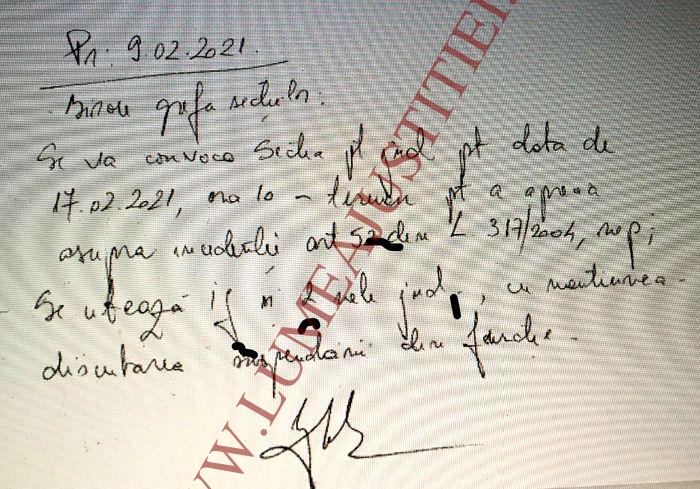 Pr: 9.02.2021.
Birou grefa secțiilor:
Se va convoca Secția pt jud pt data de
17.02.2021, ora 10 – pt a aprecia
asupra incidenței art 52 din L 317/2004, rep;
Se citează IJ și 2 jud., cu mențiunea
discutarea suspendării din funcție.
WWW.LUMEAJUSTITIEI.